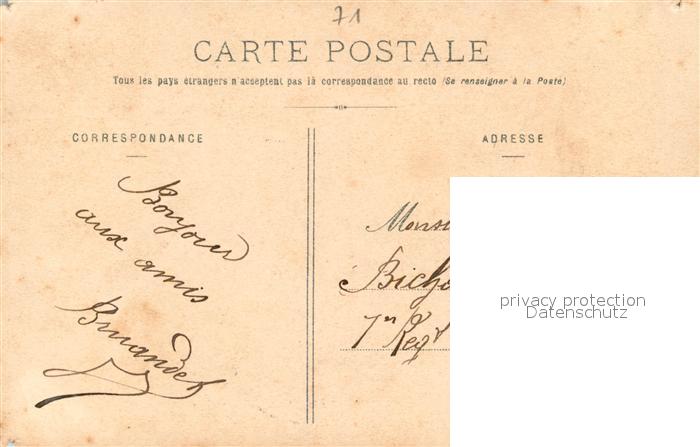 71
CARTE POSTALE
Tous les pays étrangers n'acceptent pas la correspondance au recto (Se renseigner à la Poste)
CORRESPONDANCE
Bonjour
aux amis
ADRESSE
privacy protection
Datenschutz